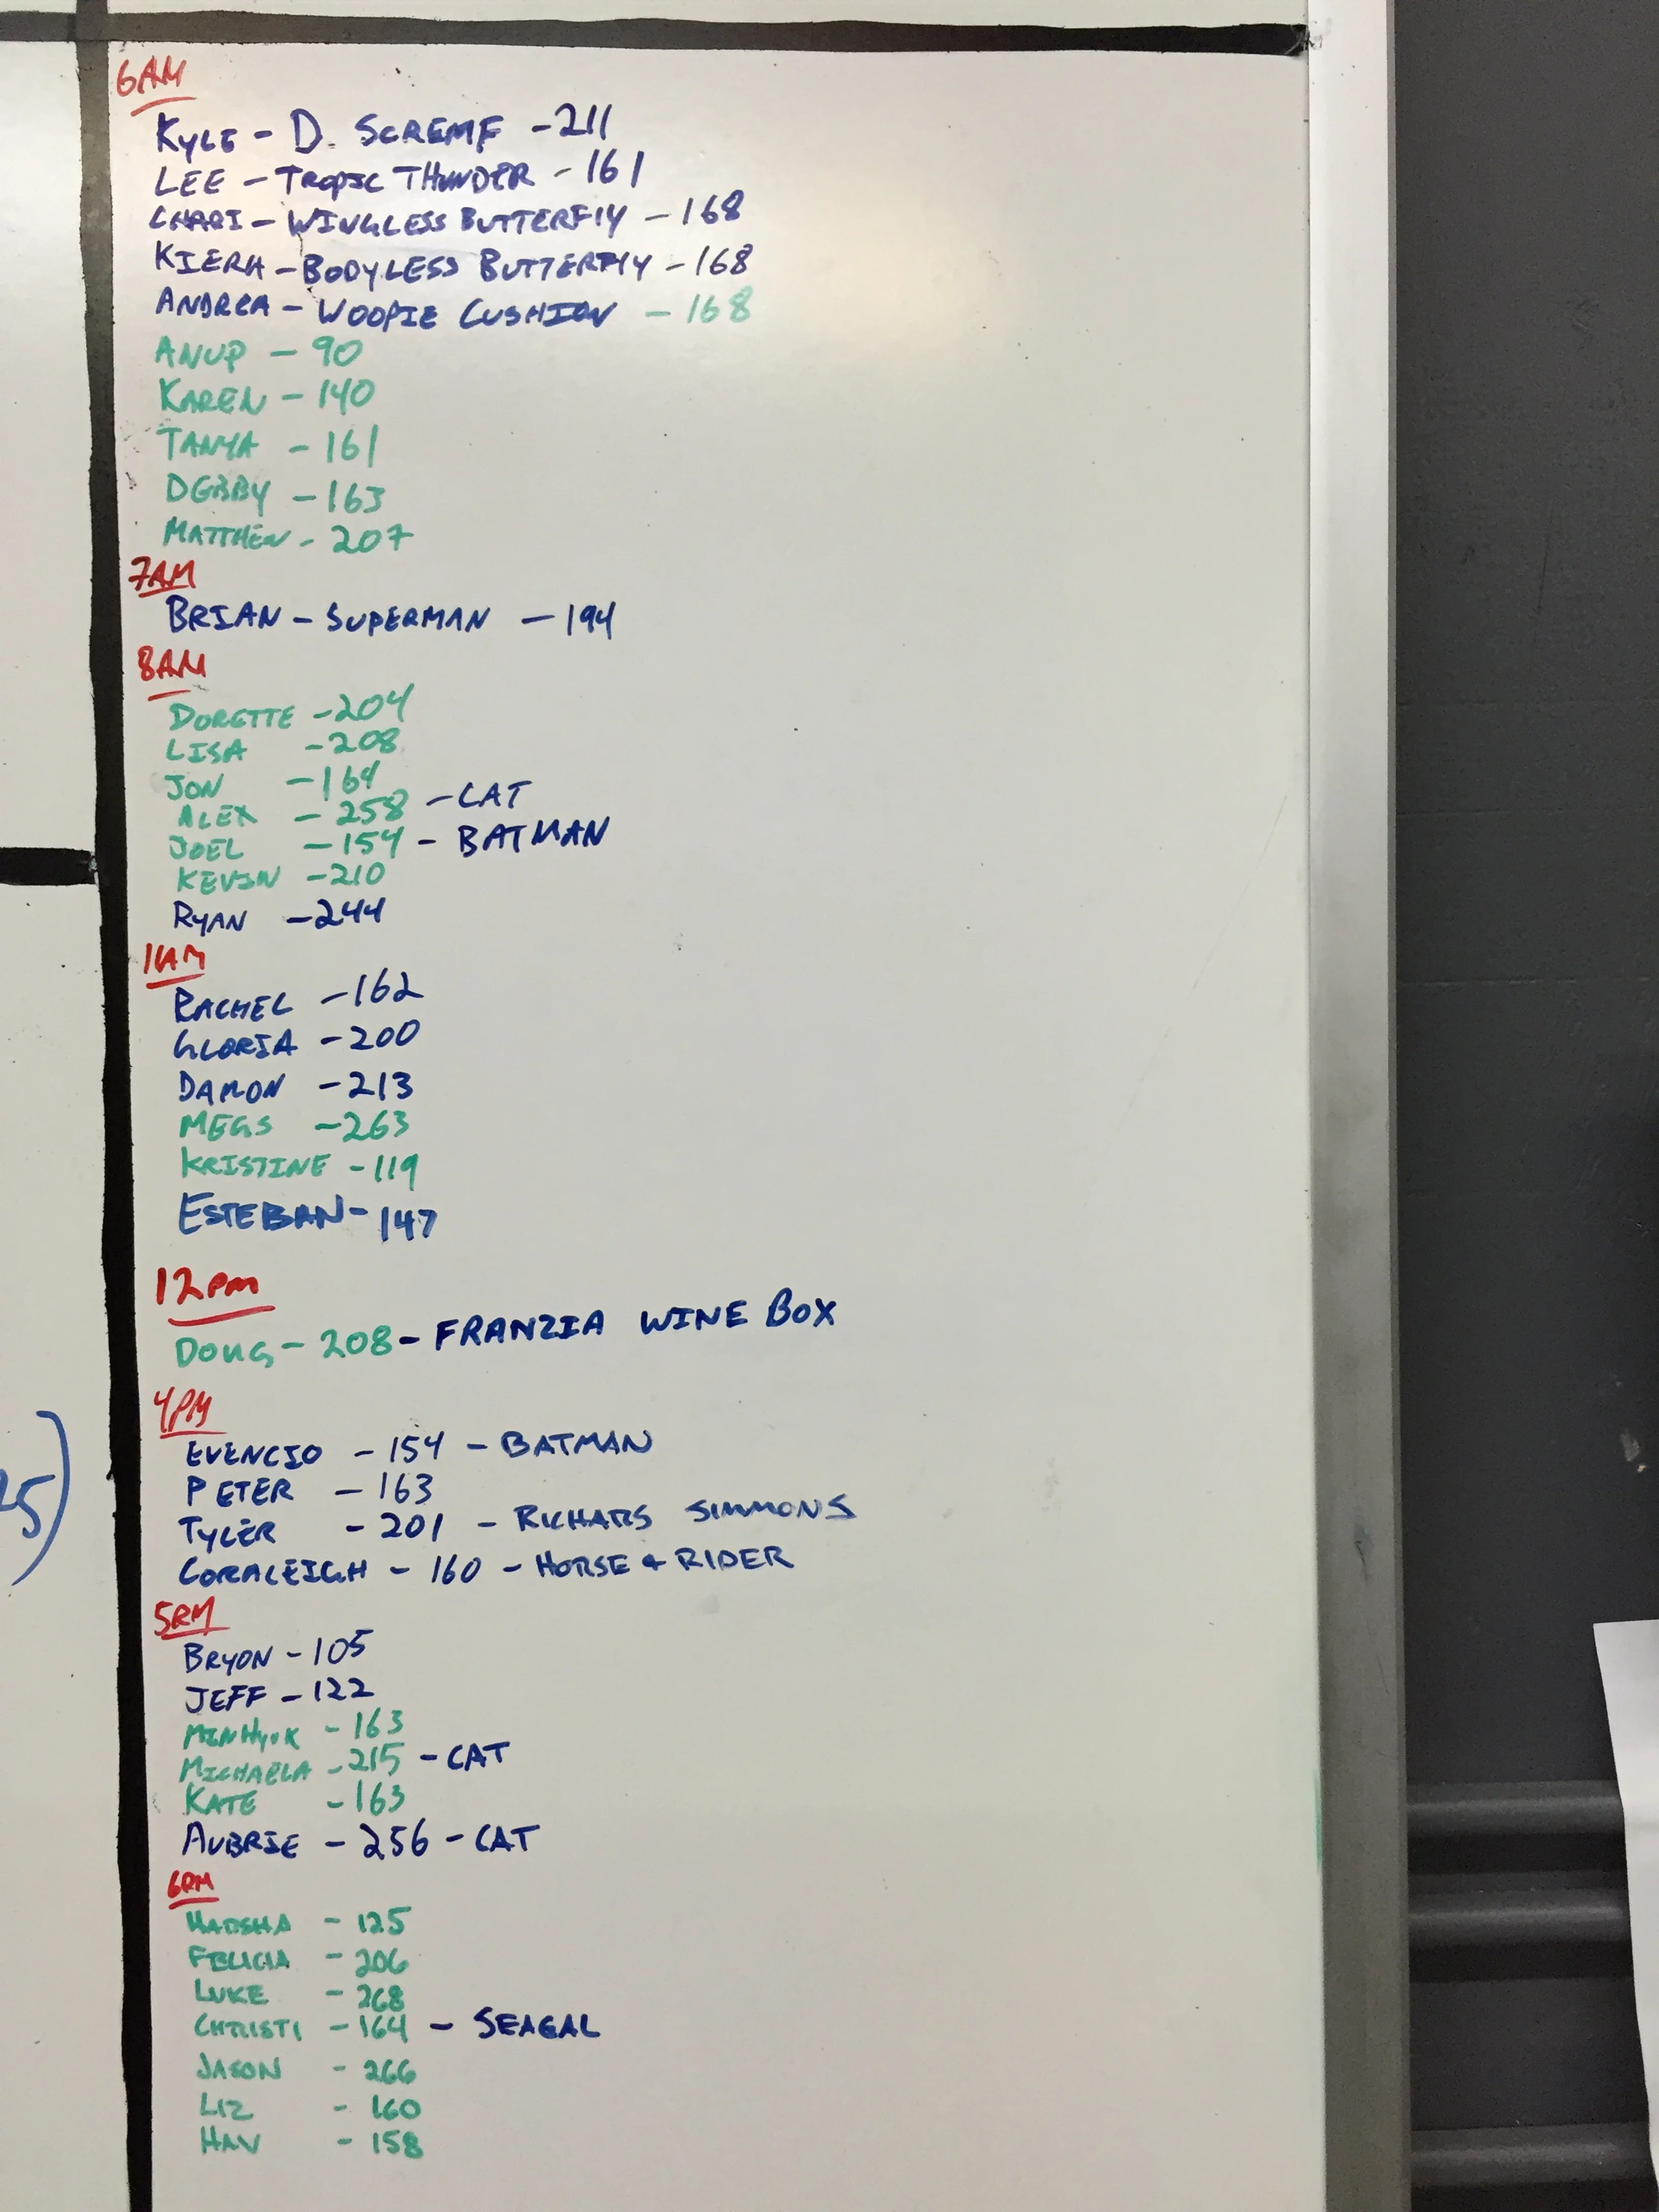 6AM
KYLE - D. SCREMF - 211
LEE - TROPIC THUNDER - 161
CHARI - WINGLESS BUTTERFLY - 168
KIERA - BODYLESS BUTTERFLY - 168
ANDREA - WOOPIE CUSHION - 168
ANUP - 90
KAREN - 140
TANYA - 161
DEBBY - 163
MATTHEW - 207
7AM
BRIAN - SUPERMAN - 194
8AM
DORETTE - 204
LISA - 208
JON - 164
ALEX - 258 - CAT
JOEL - 154 - BATMAN
KEVIN - 210
RYAN - 244
11AM
RACHEL - 162
GLORIA - 200
DAMON - 213
MEGS - 263
KRISTINE - 119
ESTEBAN - 147
12PM
DOUG - 208 - FRANZIA WINE BOX
4PM
EVENCIO - 154 - BATMAN
PETER - 163
TYLER - 201 - RICHARS SIMMONS
CORALEIGH - 160 - HORSE & RIDER
5PM
BRYON - 105
JEFF - 122
MINHYUK - 163
MICHAELA - 215 - CAT
KATE - 163
AUBRIE - 256 - CAT
6PM
HARSHA - 125
FELICIA - 206
LUKE - 268
CHRISTI - 164 - SEAGAL
JASON - 266
LIZ - 160
HAV - 158